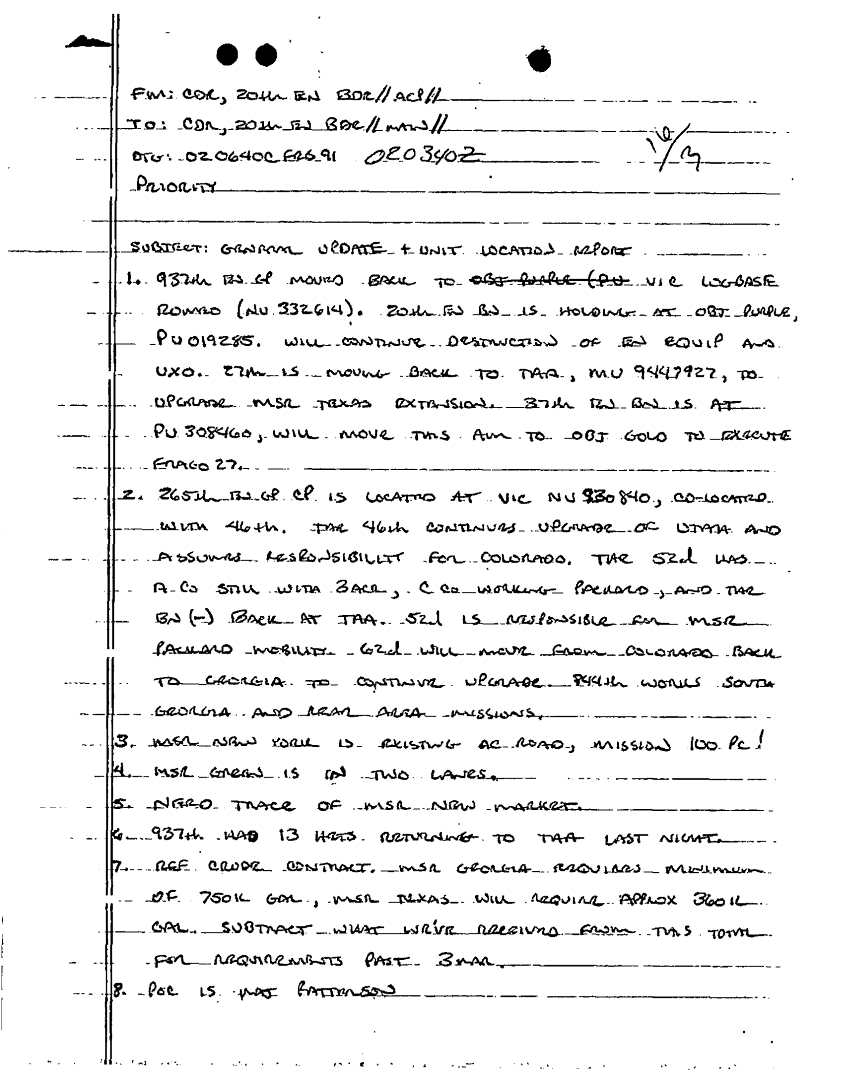 FM: CDR, 20th EN BDE//ACP//
TO: CDR, 20th EN BDE//MAIN//
DTG: 020640C FEB 91 020340Z
16/3
PRIORITY
SUBJECT: GENERAL UPDATE + UNIT LOCATION REPORT
1. 937th EN GP MOVED BACK TO OBJ PURPLE (PU VIC LOGBASE
ROMEO (NU 332614). 20th EN BN IS HOLDING AT OBJ PURPLE,
PU 019285. WILL CONTINUE DESTRUCTION OF EN EQUIP AND
UXO. 27th IS MOVING BACK TO TAA, MU 94447927, TO
UPGRADE MSR TEXAS EXTENSION. 37th EN BN IS AT
PU 308460, WILL MOVE THIS AM TO OBJ GOLD TO EXECUTE
FRAGO 27.
2. 265th EN GP CP IS LOCATED AT VIC NU 930840, CO-LOCATED
WITH 46th. THE 46th CONTINUES UPGRADE OF UTAH AND
ASSUMES RESPONSIBILITY FOR COLORADO. THE 52d HAS
A Co STILL WITH 3ACR, C Co WORKING PACKARD, AND THE
BN (-) BACK AT TAA. 52d IS RESPONSIBLE FOR MSR
PACKARD MOBILITY. 62d WILL MOVE FROM COLORADO BACK
TO GEORGIA TO CONTINUE UPGRADE. 844th WORKS SOUTH
GEORGIA AND REAR AREA MISSIONS.
3. MSR NEW YORK IS EXISTING AC ROAD, MISSION 100 PC!
4. MSR GREEN IS IN TWO LANES.
5. NEED TRACE OF MSR NEW MARKET.
6. 937th HAD 13 HETS RETURNING TO TAA LAST NIGHT.
7. REF CRUDE CONTRACT. MSR GEORGIA REQUIRES MINIMUM
OF 750K GAL, MSR TEXAS WILL REQUIRE APPROX 360K
GAL. SUBTRACT WHAT WE'VE RECEIVED FROM THIS TOTAL
FOR REQUIREMENTS PAST 3 MAR.
8. POC IS MAJ PATTERSON